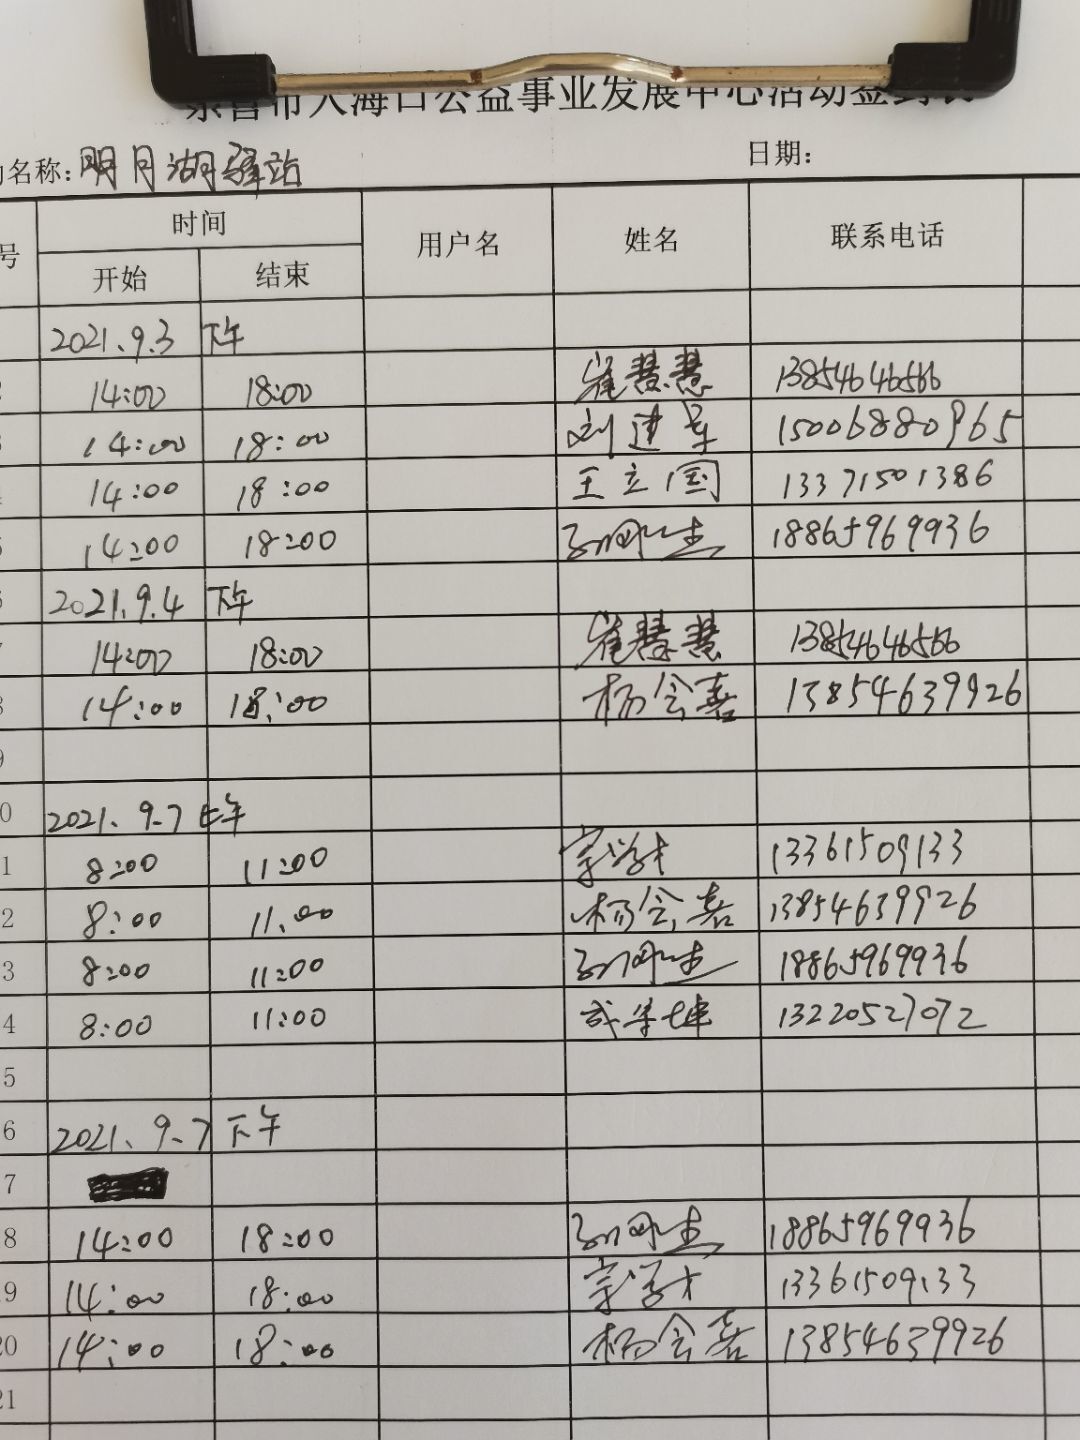 东营市入海口公益事业发展中心活动签到表
动名称：明月湖驿站 日期：
号 时间 用户名 姓名 联系电话
开始 结束
2021.9.3 下午
2 14:00 18:00 崔慧慧 13854646566
3 14:00 18:00 刘建军 15006880965
4 14:00 18:00 王立国 13371501386
5 14:00 18:00 18865969936
6 2021.9.4 下午
7 14:00 18:00 崔慧慧 13854646566
8 14:00 18:00 杨会嘉 13854639926
9
0 2021.9.7 上午
1 8:00 11:00 宗学才 13361509133
2 8:00 11:00 杨会嘉 13854639926
3 8:00 11:00 18865969936
4 8:00 11:00 13220527072
5
6 2021.9.7 下午
7
8 14:00 18:00 18865969936
9 14:00 18:00 宗学才 13361509133
20 14:00 18:00 杨会嘉 13854639926
21